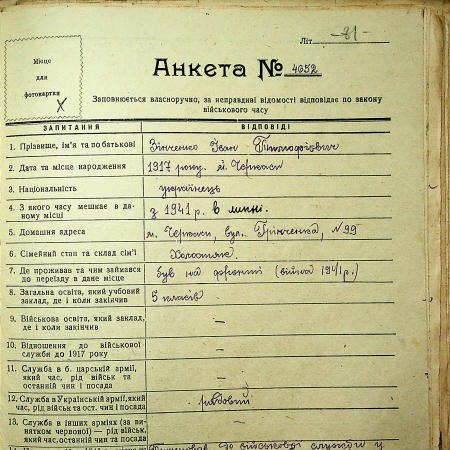 Літ. -81-
Місце
для
фотокартки
Анкета № 4652
Заповнюється власноручно, за неправдиві відомості відповідає по закону
військового часу
ЗАПИТАННЯ ВІДПОВІДІ
1. Прізвище, ім'я та по батькові Зінченко Іван Тимофійович
2. Дата та місце народження 1917 року. м. Черкаси
3. Національність українець
4. З якого часу мешкає в да-
ному місці з 1941 р. в липні.
5. Домашня адреса м. Черкаси, вул. Грінченка, №99
6. Сімейний стан та склад сім'ї Холостяк.
7. Де проживав та чим займався
до переїзду в дане місце був на фронті (війна 1941 р.)
8. Загальна освіта, який учбовий
заклад, де і коли закінчив 5 класів
9. Військова освіта, який заклад,
де і коли закінчив —
10. Відношення до військової
служби до 1917 року —
11. Служба в б. царській армії,
який час, рід військ та
останній чин і посада —
12. Служба в Українській армії, який
час, рід військ та ост. чин і посада рядовий
13. Служба в інших арміях (за ви-
нятком червоної) — рід військ,
який час, останній чин та посада —
до військової служби у